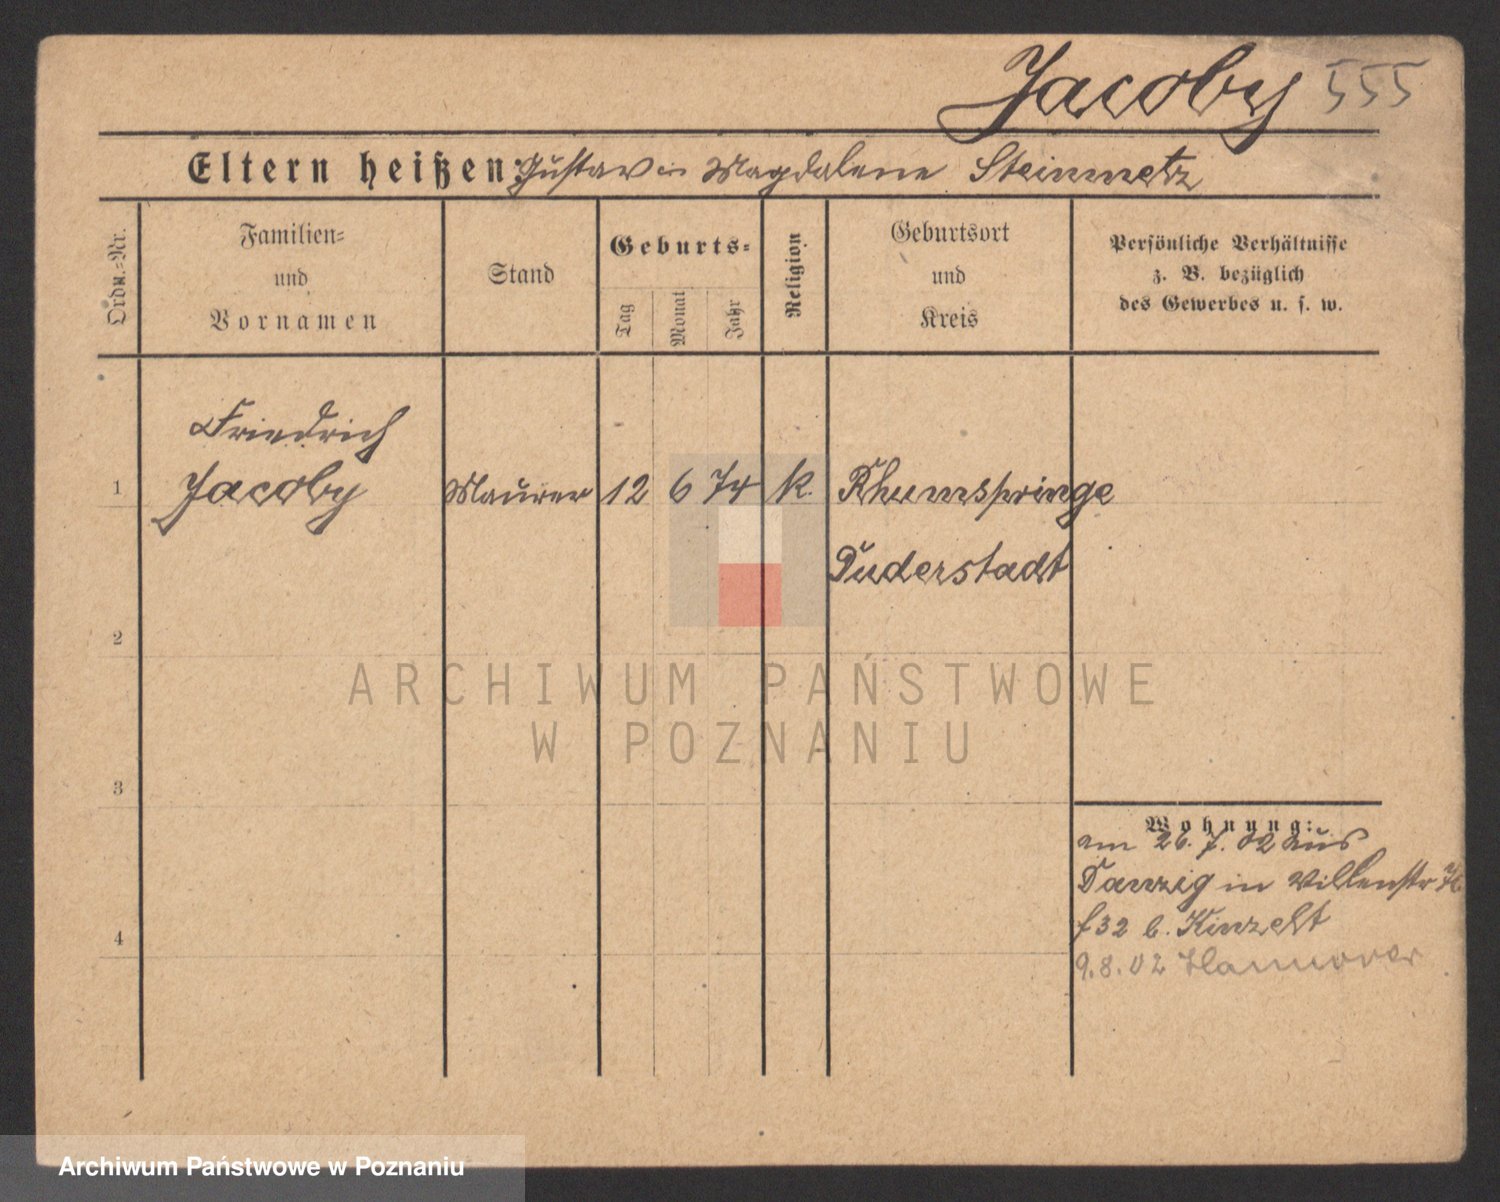 Jacoby 555
Eltern heißen: Gustav u Magdalene Steinmetz
Ordn.=Nr.
Familien=
und
Vornamen
Stand
Geburts=
Tag
Monat
Jahr
Religion
Geburtsort
und
Kreis
Persönliche Verhältnisse
z. B. bezüglich
des Gewerbes u. s. w.
Friedrich
1 Jacoby Maurer 12 6 74 k. Rhumspringe
Duderstadt
2
3
4
Wohnung:
am 26. 7. 02 aus
Danzig in Villenstr
f32 b. Kinzelt
9.8.02 Hannover
ARCHIWUM PAŃSTWOWE
W POZNANIU
Archiwum Państwowe w Poznaniu